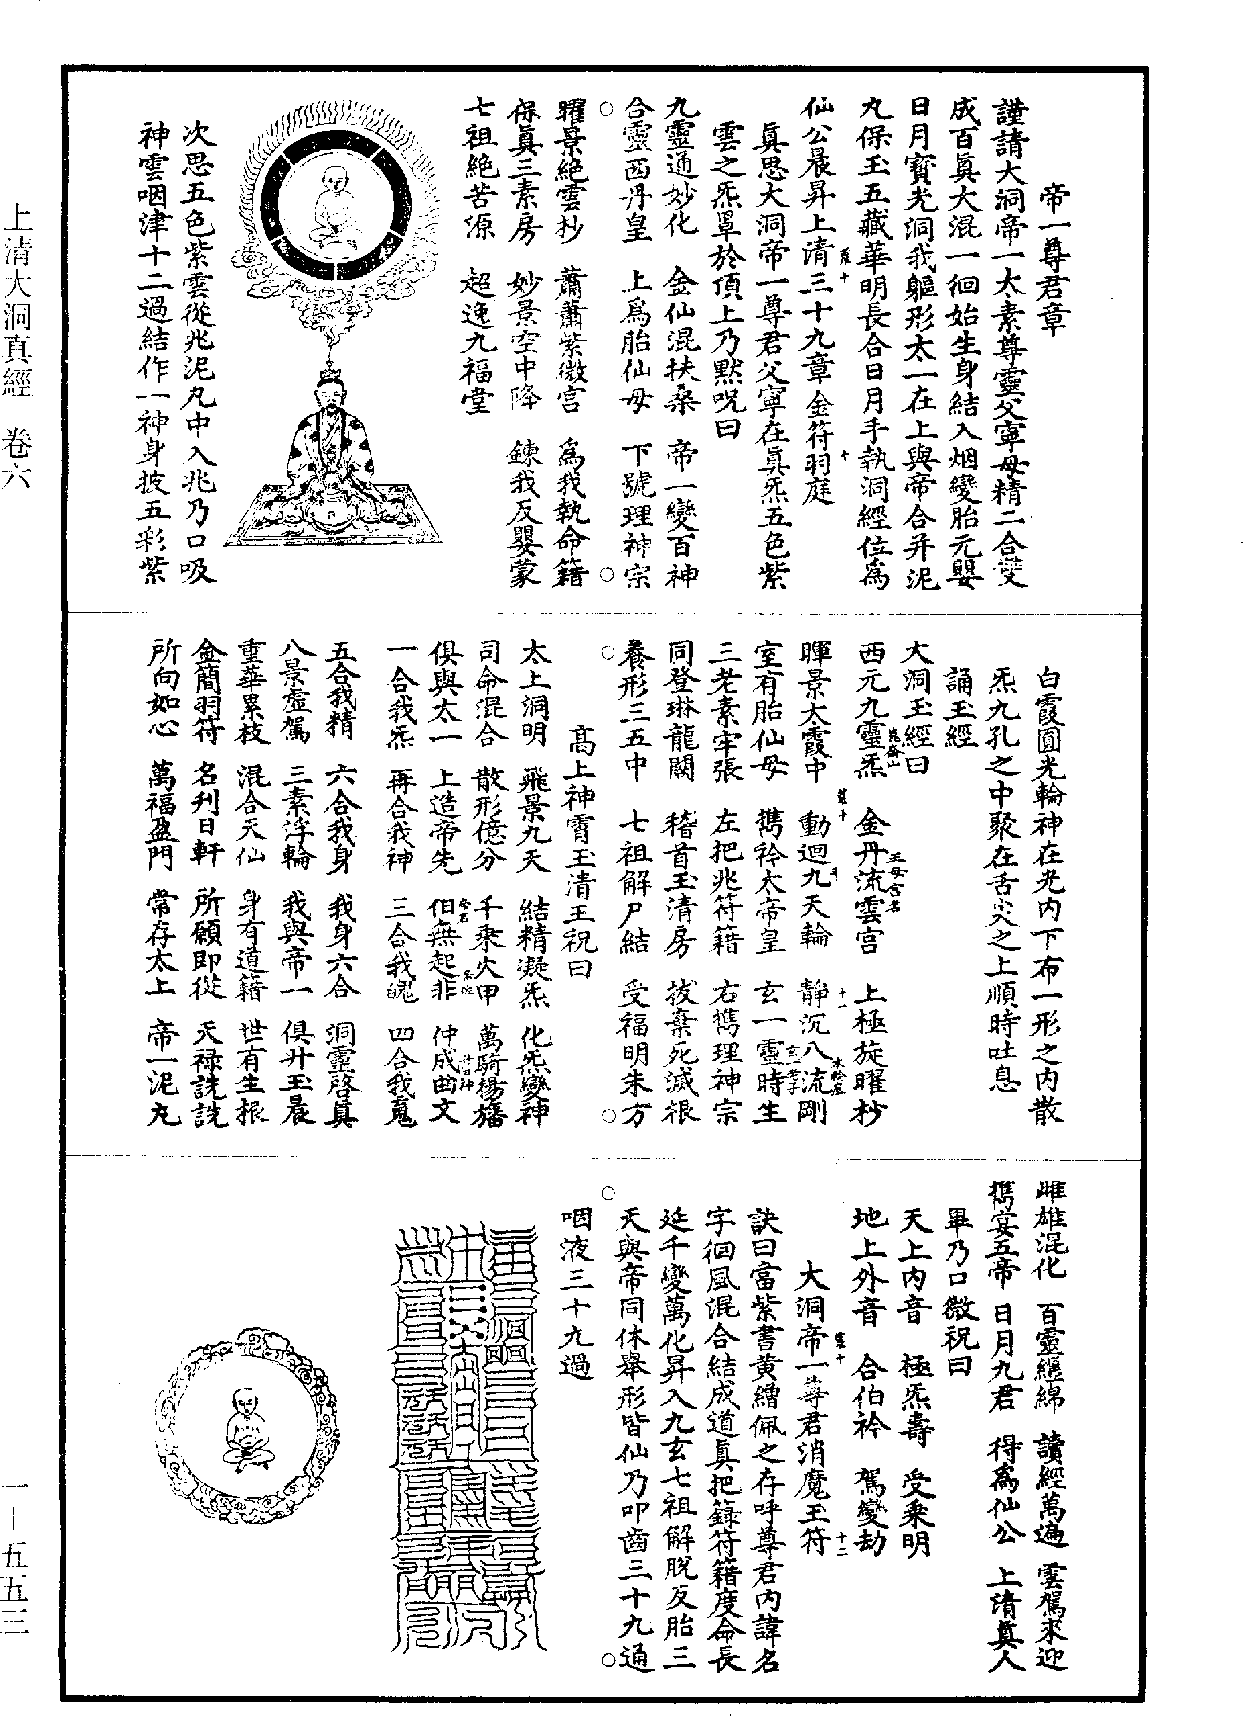 帝一尊君章
謹請大洞帝一太素尊靈父寧母精二合變
成百眞大混一徊始生身結入烟變胎元嬰
日月寶光洞我軀形太一在上與帝合幷泥
丸保玉五藏華明長合日月手執洞經位爲
仙公晨昇上清三十九章金符羽庭
眞思大洞帝一尊君父寧在眞炁五色紫
雲之炁罩於頂上乃默呪曰
九靈通妙化 金仙混扶桑 帝一變百神
合靈西丹皇 上爲胎仙母 下號理神宗
曜景絶雲杪 蕭蕭紫微宮 爲我執命籍
保眞三素房 妙景空中降 鍊我反嬰蒙
七祖絶苦源 超逸九福堂
次思五色紫雲從兆泥丸中入兆乃口吸
神雲咽津十二過結作一神身披五彩紫
白霞圓光輪神在光内下布一形之内散
炁九孔之中聚在舌尖之上順時吐息
誦玉經
大洞玉經曰
西元九靈炁 金丹流雲宮 上極旋曜杪
暉景太霞中 動迴九天輪 靜沉八流剛
室有胎仙母 攜衿太帝皇 玄一靈時生
三老素牢張 左把兆符籍 右攜理神宗
同登琳龍闕 稽首玉清房 拔棄死滅根
養形三五中 七祖解尸結 受福明朱方
高上神霄玉清王祝曰
太上洞明 飛景九天 結精凝炁 化炁變神
司命混合 散形億分 千乘火甲 萬騎揚旛
俱與太一 上造帝先 伯無起非 仲成曲文
一合我炁 再合我神 三合我魄 四合我䰟
五合我精 六合我身 我身六合 洞靈啓眞
八景虛駕 三素浮輪 我與帝一 俱升玉晨
重華累枝 混合天仙 身有道籍 世有生根
金簡羽符 名刊日軒 所願即從 天祿詵詵
所向如心 萬福盈門 常存太上 帝一泥丸
雌雄混化 百靈纏綿 讀經萬遍 雲駕來迎
攜宴五帝 日月九君 得爲仙公 上清眞人
畢乃口微祝曰
天上内音 極炁壽 受乘明
地上外音 合伯衿 駕變劫
大洞帝一尊君消魔王符
訣曰當紫書黄繒佩之存呼尊君内諱名
字徊風混合結成道眞把籙符籍度命長
延千變萬化昇入九玄七祖解脱反胎三
天與帝同休舉形皆仙乃叩齒三十九通
咽液三十九過
上清大洞真經 卷六
一—五五三